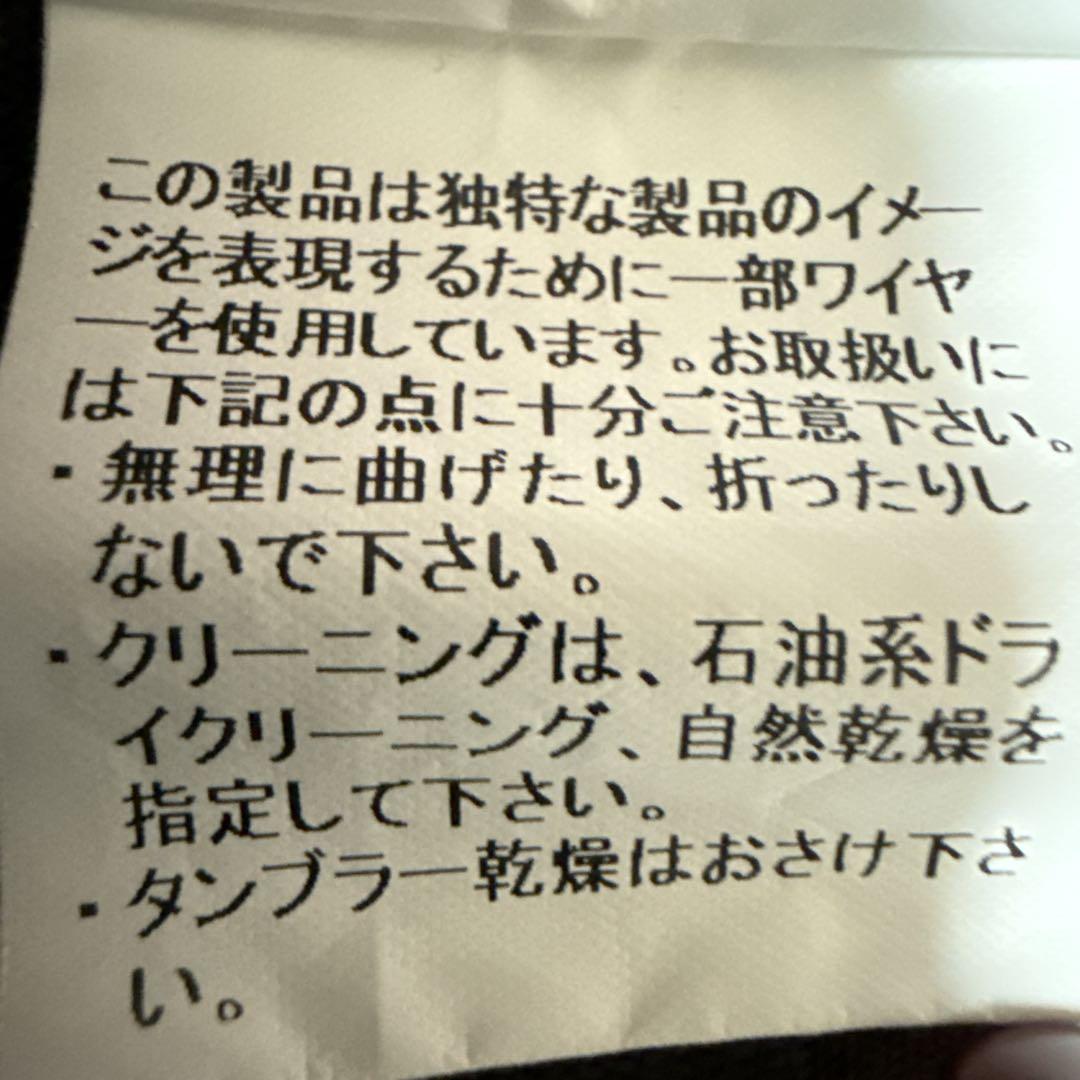 この製品は独特な製品のイメー
ジを表現するために一部ワイヤ
ーを使用しています。お取扱いに
は下記の点に十分ご注意下さい。
・無理に曲げたり、折ったりし
ないで下さい。
・クリーニングは、石油系ドラ
イクリーニング、自然乾燥を
指定して下さい。
・タンブラー乾燥はおさけ下さ
い。